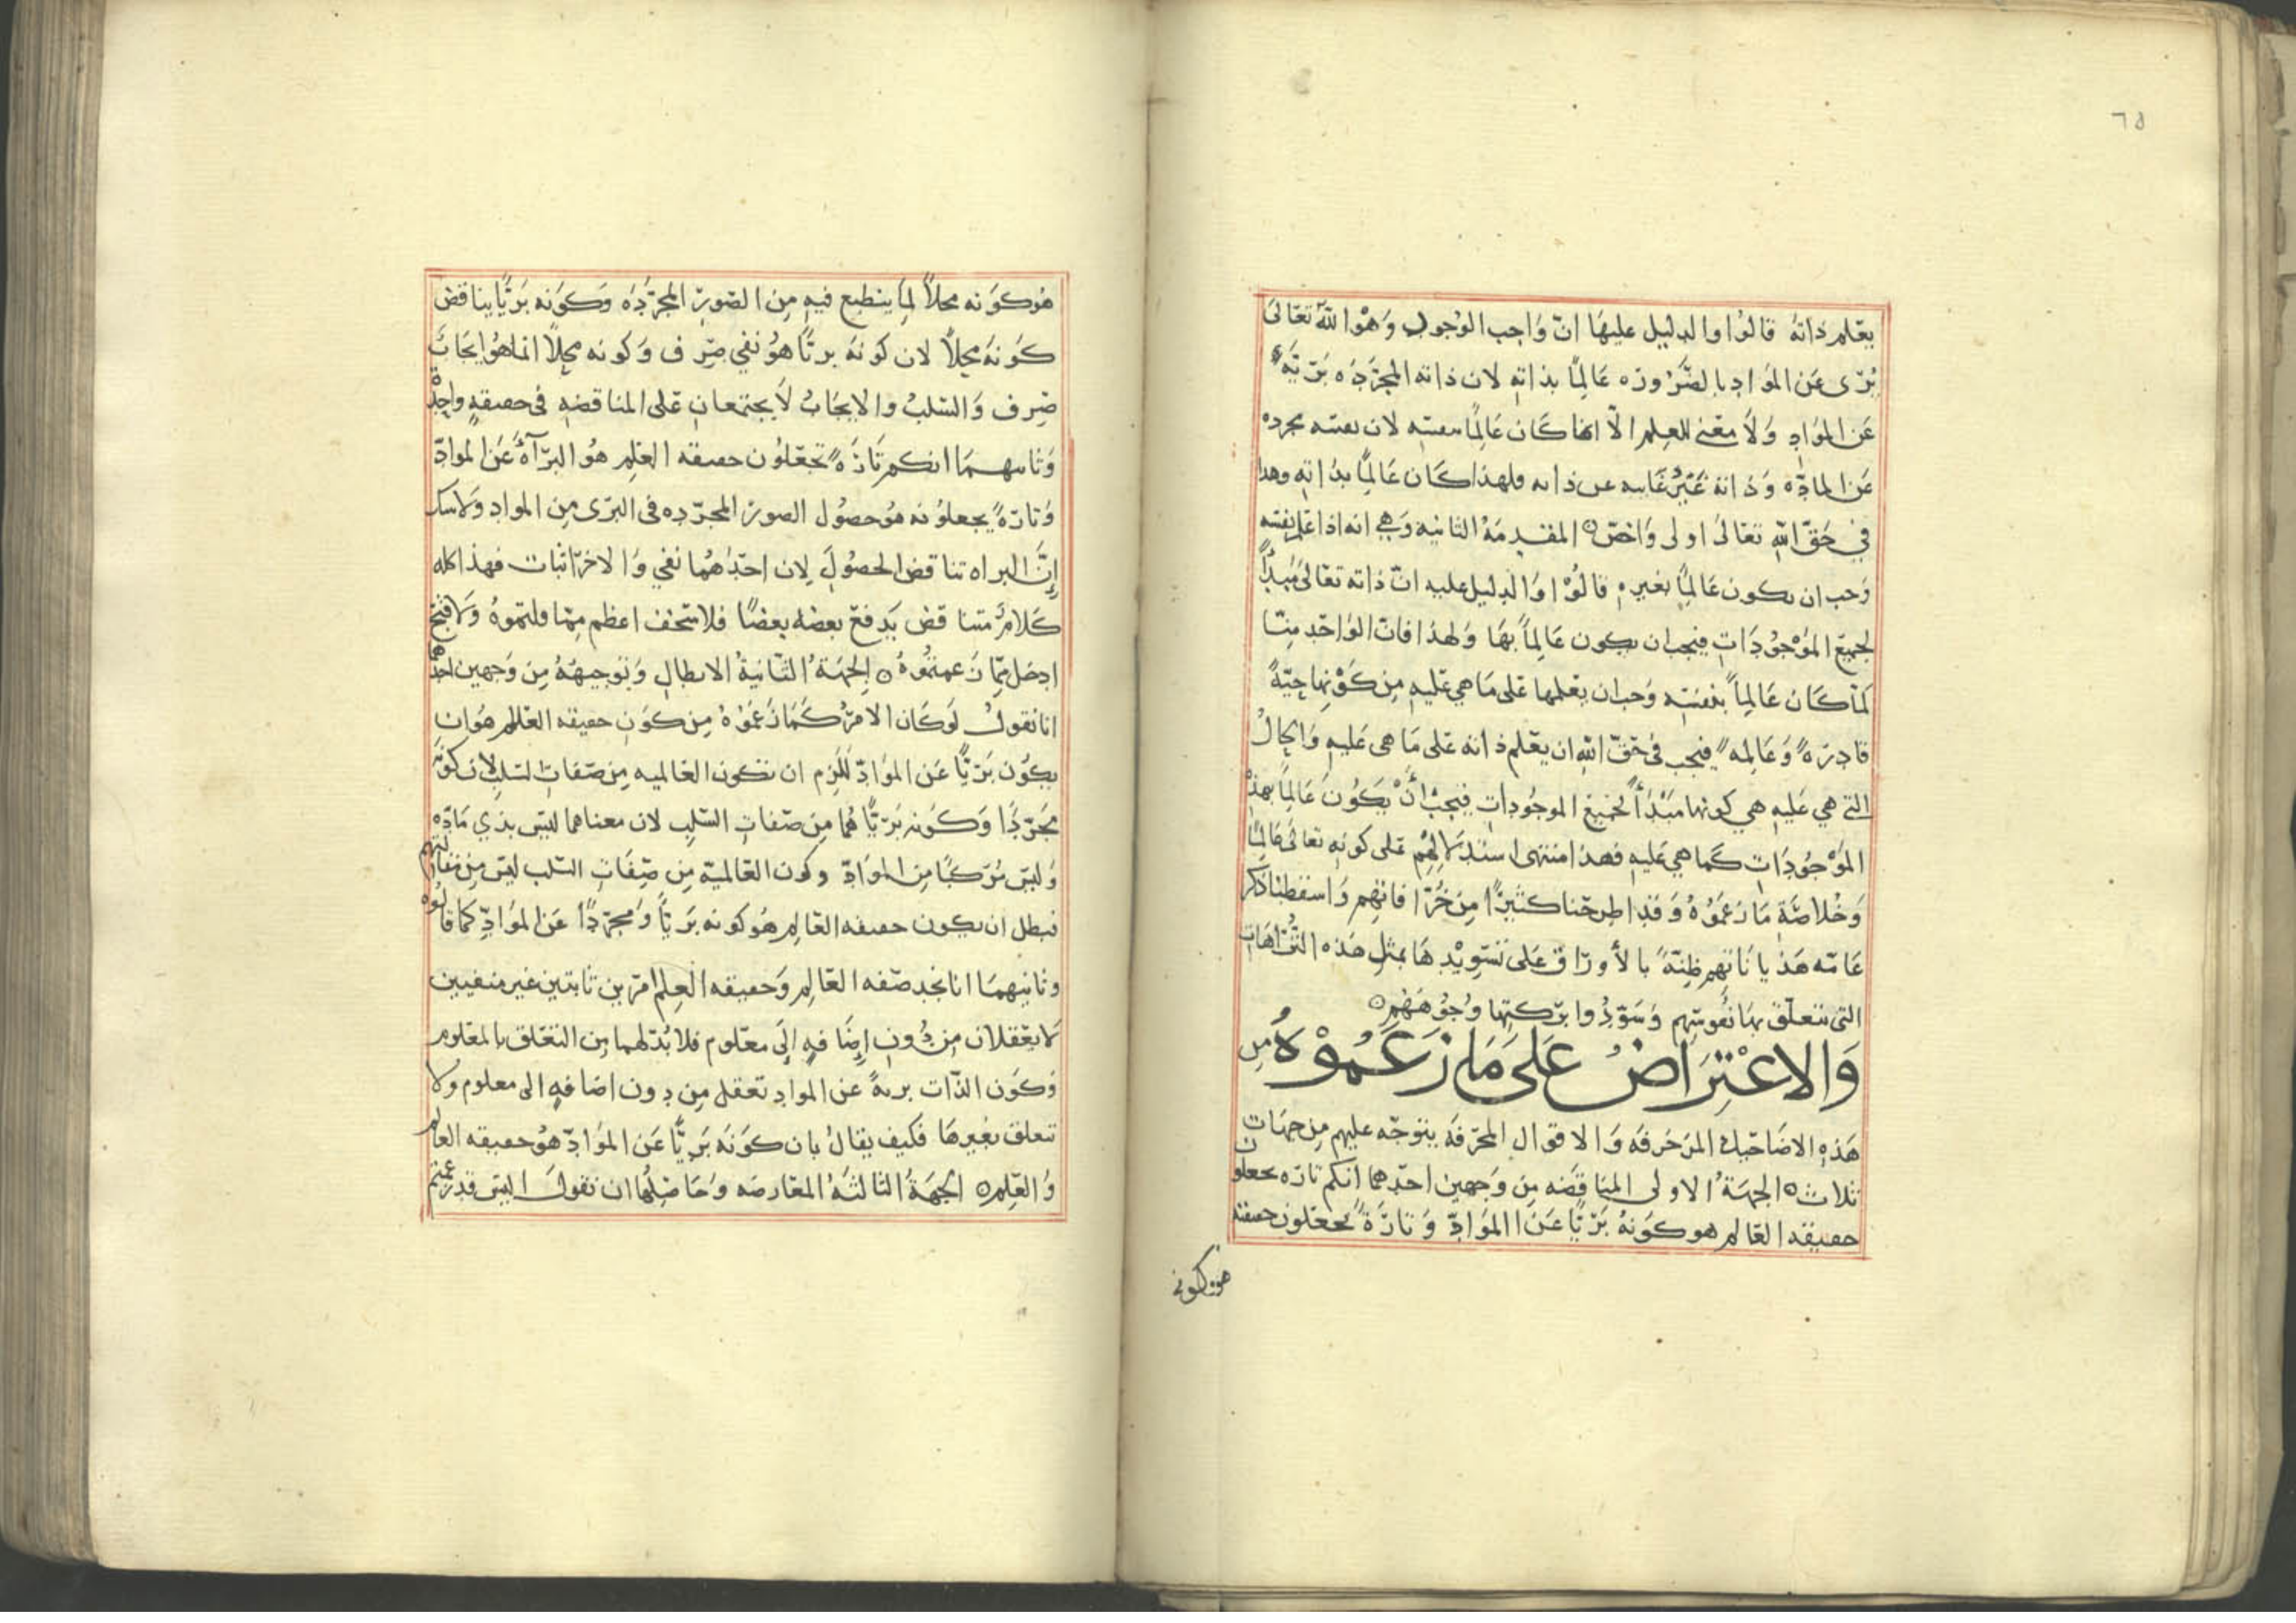 ٦٥
يعلم ذاته قالوا والدليل عليها انّ واجب الوجود وهو الله تعالى
برى عن المواد بالضروره عالمًا بذاته لان ذاته المجرّده بريّة
عن المواد ولا معنى للعلم الا انما كان عالمًا بنفسه لان نفسه مجرده
عن الماده وذاته غير غايبه عن ذاته فلهذا كان عالمًا بذاته وهذا
في حق الله تعالى اولى واخص ه المقدمة الثانيه وهي انه اذا علم نفسه
وجب ان يكون عالمًا بغيره قالوا والدليل عليه انّ ذاته تعالى مبدأ
لجميع الموجودات فيجب ان يكون عالمًا بها ولهذا فان الواحد منّا
لمّا كان عالمًا بنفسه وجب ان يعلمها على ما هي عليه من كونها حيّةً
قادرةً وعالمةً فيجب في حق الله ان يعلم ذاته على ما هي عليه والحال
التي هي عليه هي كونها مبدأ لجميع الموجودات فيجب أن يكون عالمًا بهذه
الموجودات كما هي عليه فهذا منتهى استدلالهم على كونه تعالى عالمًا
وخلاصة ما زعموه وقد اطرحنا كثيرًا من خرافاتهم واسقطنا ذكر
عامّه هذياناتهم ظنّةً بالأوراق على تسويدها بمثل هذه الترّاهات
التي تتعلق بها نفوسهم وسوّدوا بركتها وجوههم ه
والاعتراض على ما زعموه من
هذه الاضاحيك المزخرفه والاقوال المحرّفه يتوجّه عليهم من جهات
ثلاث ه الجهة الاولى المناقضه من وجهين احدهما انكم تاره تجعلون
حقيقه العالم هو كونه بريًّا عن المواد وتارةً تجعلون حقيقته
هو كونه
هو كونه محلاًّ لما ينطبع فيه من الصور المجرّده وكونه بريًّا يناقض
كونه محلاًّ لان كونه بريًّا هو نفي صرف وكونه محلاًّ انما هو ايجاب
صرف والسلب والايجاب لا يجتمعان على المناقضه في حقيقه واحدة
وثانيهما انكم تارةً تجعلون حقيقه العلم هو البرآة عن المواد
وتارةً يجعلونه هو حصول الصور المجرّده في البرى من المواد ولا شك
إنّ البراه تناقض الحصول لان احداهما نفي والاخر اثبات فهذا كله
كلام متناقض يدفع بعضه بعضًا فلا سخف اعظم ممّا قلتموه ولا قبح
ادخل ممّا زعمتموه ه الجهة الثانية الابطال وتوجيهه من وجهين احدهما
انا نقول لو كان الامر كما زعموه من كون حقيقه العالم هو ان
يكون بريًّا عن المواد للزم ان تكون العالميه من صفات السلب لان كونه
مجرّدًا وكونه بريًّا هما من صفات السلب لان معناهما ليس بذي مادّه
وليس مركبًا من المواد وكون العالميّة من صفات السلب ليس من مقالتهم
فبطل ان يكون حقيقه العالم هو كونه بريًّا ومجرّدًا عن المواد كما قالوه
وثانيهما انا نجد صفه العالم وحقيقه العلم امرين ثابتين غير منفيين
لا يعقلان من دون إضافه إلى معلوم فلا بدّ لهما من التعلق بالمعلوم
وكون الذّات بريةً عن المواد تعقل من دون اضافه الى معلوم ولا
تتعلق بغيرها فكيف يقال بان كونه بريًّا عن المواد هو حقيقه العالم
والعلم ه الجهة الثالثة المعارضه وحاصلها ان نقول اليس قد زعمتم